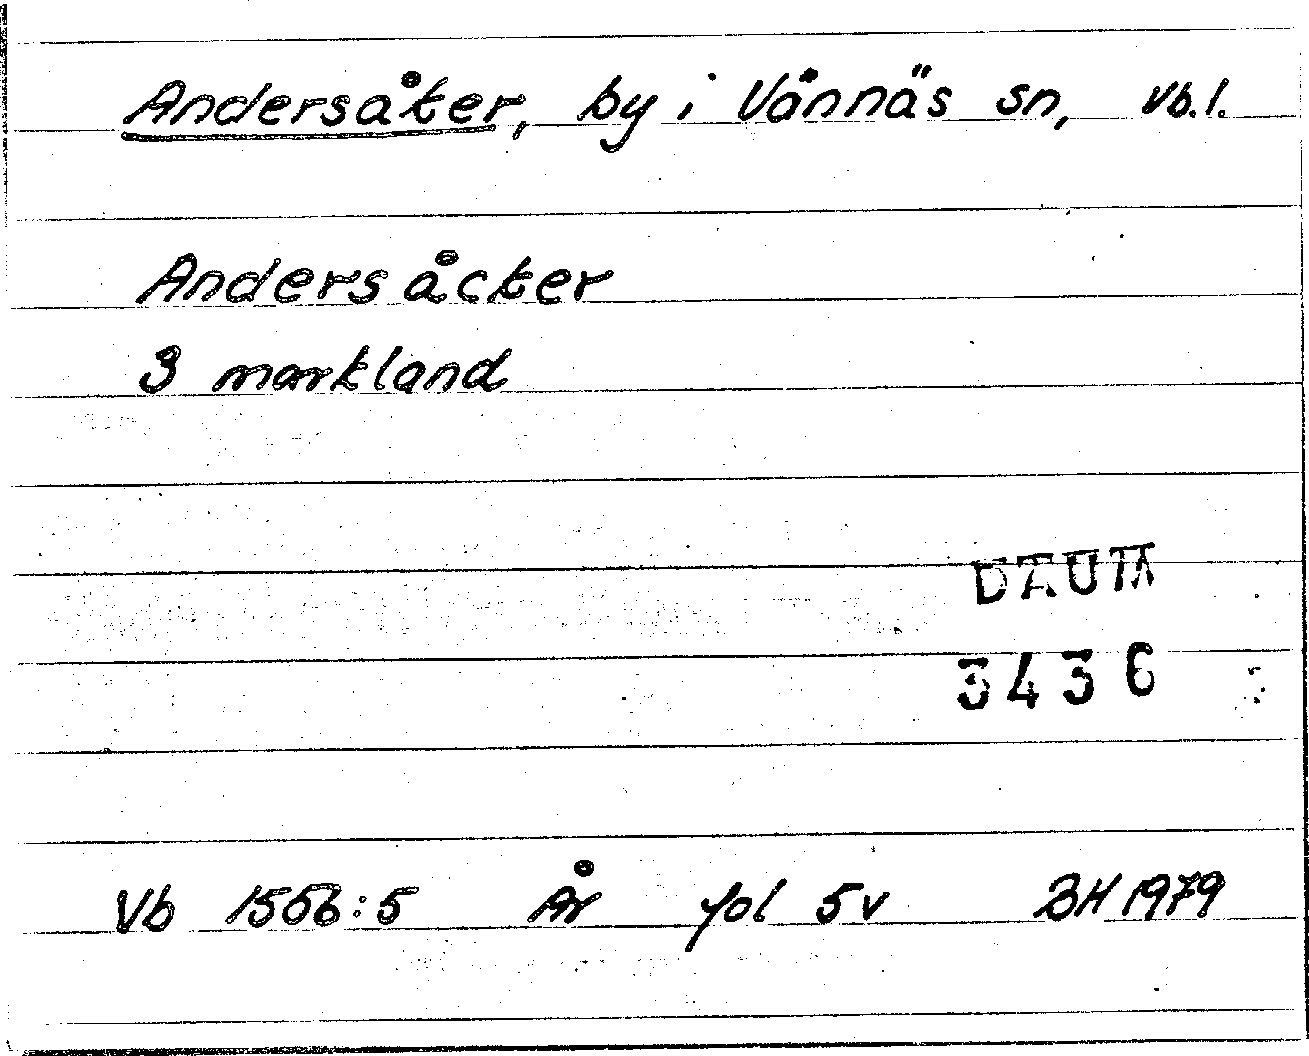 Andersåker, by i Vännäs sn, Vb.l.
Anders åcker
3 markland
DAUM
3436
Vb 1556:5 År fol 5v BH 1979